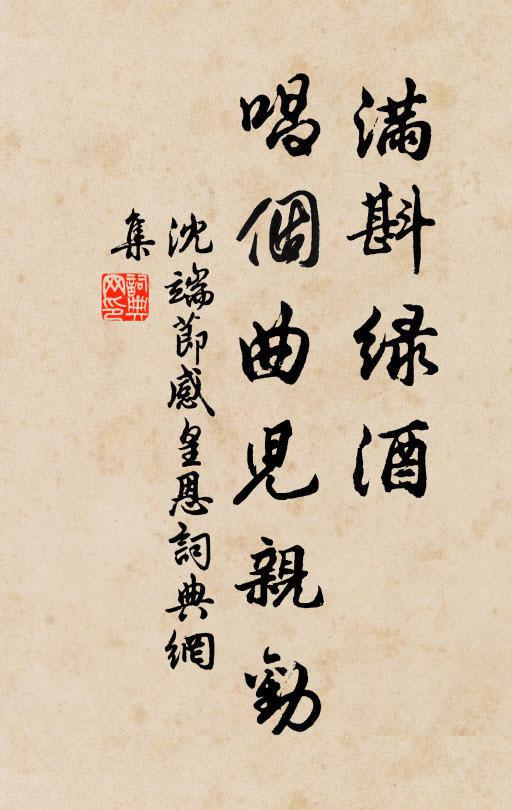 滿斟緑酒
唱個曲兒親勸
沈端節感皇恩詞典網
集
詞典網印